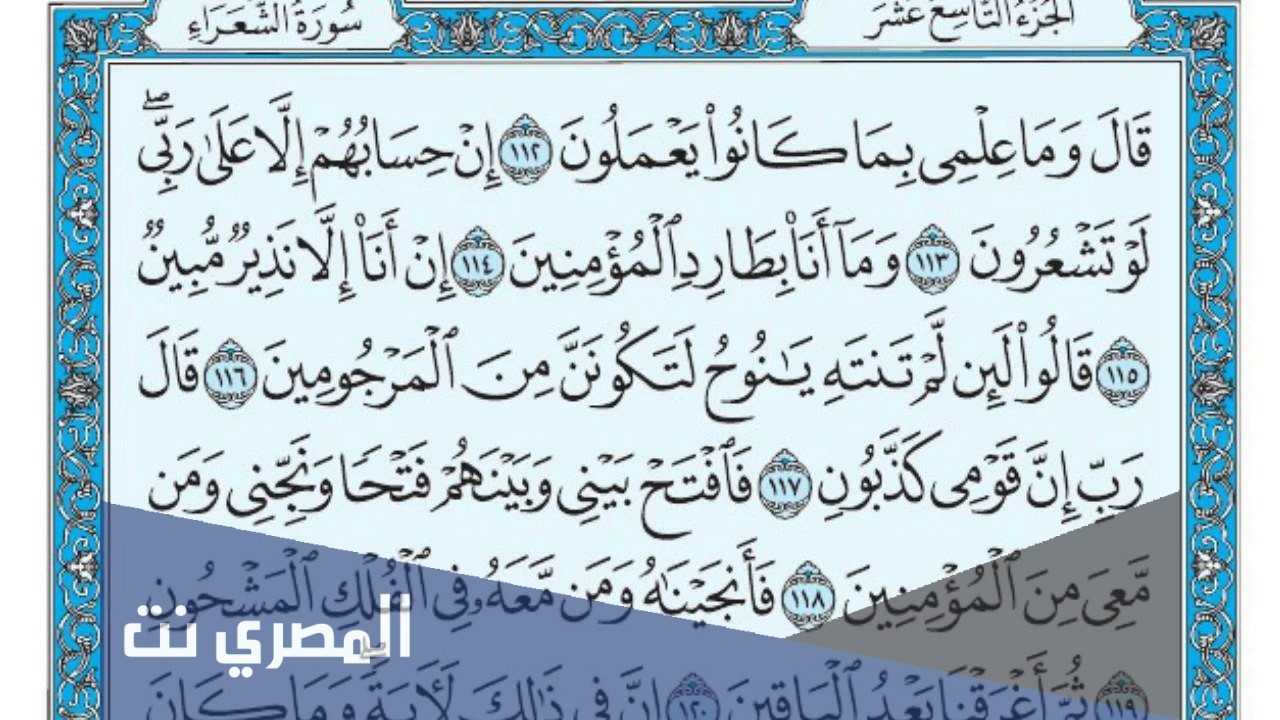 الجزء التاسع عشر
سورة الشعراء
قَالَ وَمَا عِلْمِى بِمَا كَانُوا۟ يَعْمَلُونَ ١١٢ إِنْ حِسَابُهُمْ إِلَّا عَلَىٰ رَبِّىۖ
لَوْ تَشْعُرُونَ ١١٣ وَمَآ أَنَا۠ بِطَارِدِ ٱلْمُؤْمِنِينَ ١١٤ إِنْ أَنَا۠ إِلَّا نَذِيرٌ مُّبِينٌ
١١٥ قَالُوا۟ لَئِن لَّمْ تَنتَهِ يَـٰنُوحُ لَتَكُونَنَّ مِنَ ٱلْمَرْجُومِينَ ١١٦ قَالَ
رَبِّ إِنَّ قَوْمِى كَذَّبُونِ ١١٧ فَٱفْتَحْ بَيْنِى وَبَيْنَهُمْ فَتْحًا وَنَجِّنِى وَمَن
مَّعِىَ مِنَ ٱلْمُؤْمِنِينَ ١١٨ فَأَنجَيْنَـٰهُ وَمَن مَّعَهُۥ فِى ٱلْفُلْكِ ٱلْمَشْحُونِ
١١٩ ثُمَّ أَغْرَقْنَا بَعْدُ ٱلْبَاقِينَ ١٢٠ إِنَّ فِى ذَٰلِكَ لَـَٔايَةً وَمَا كَانَ
المصري نت